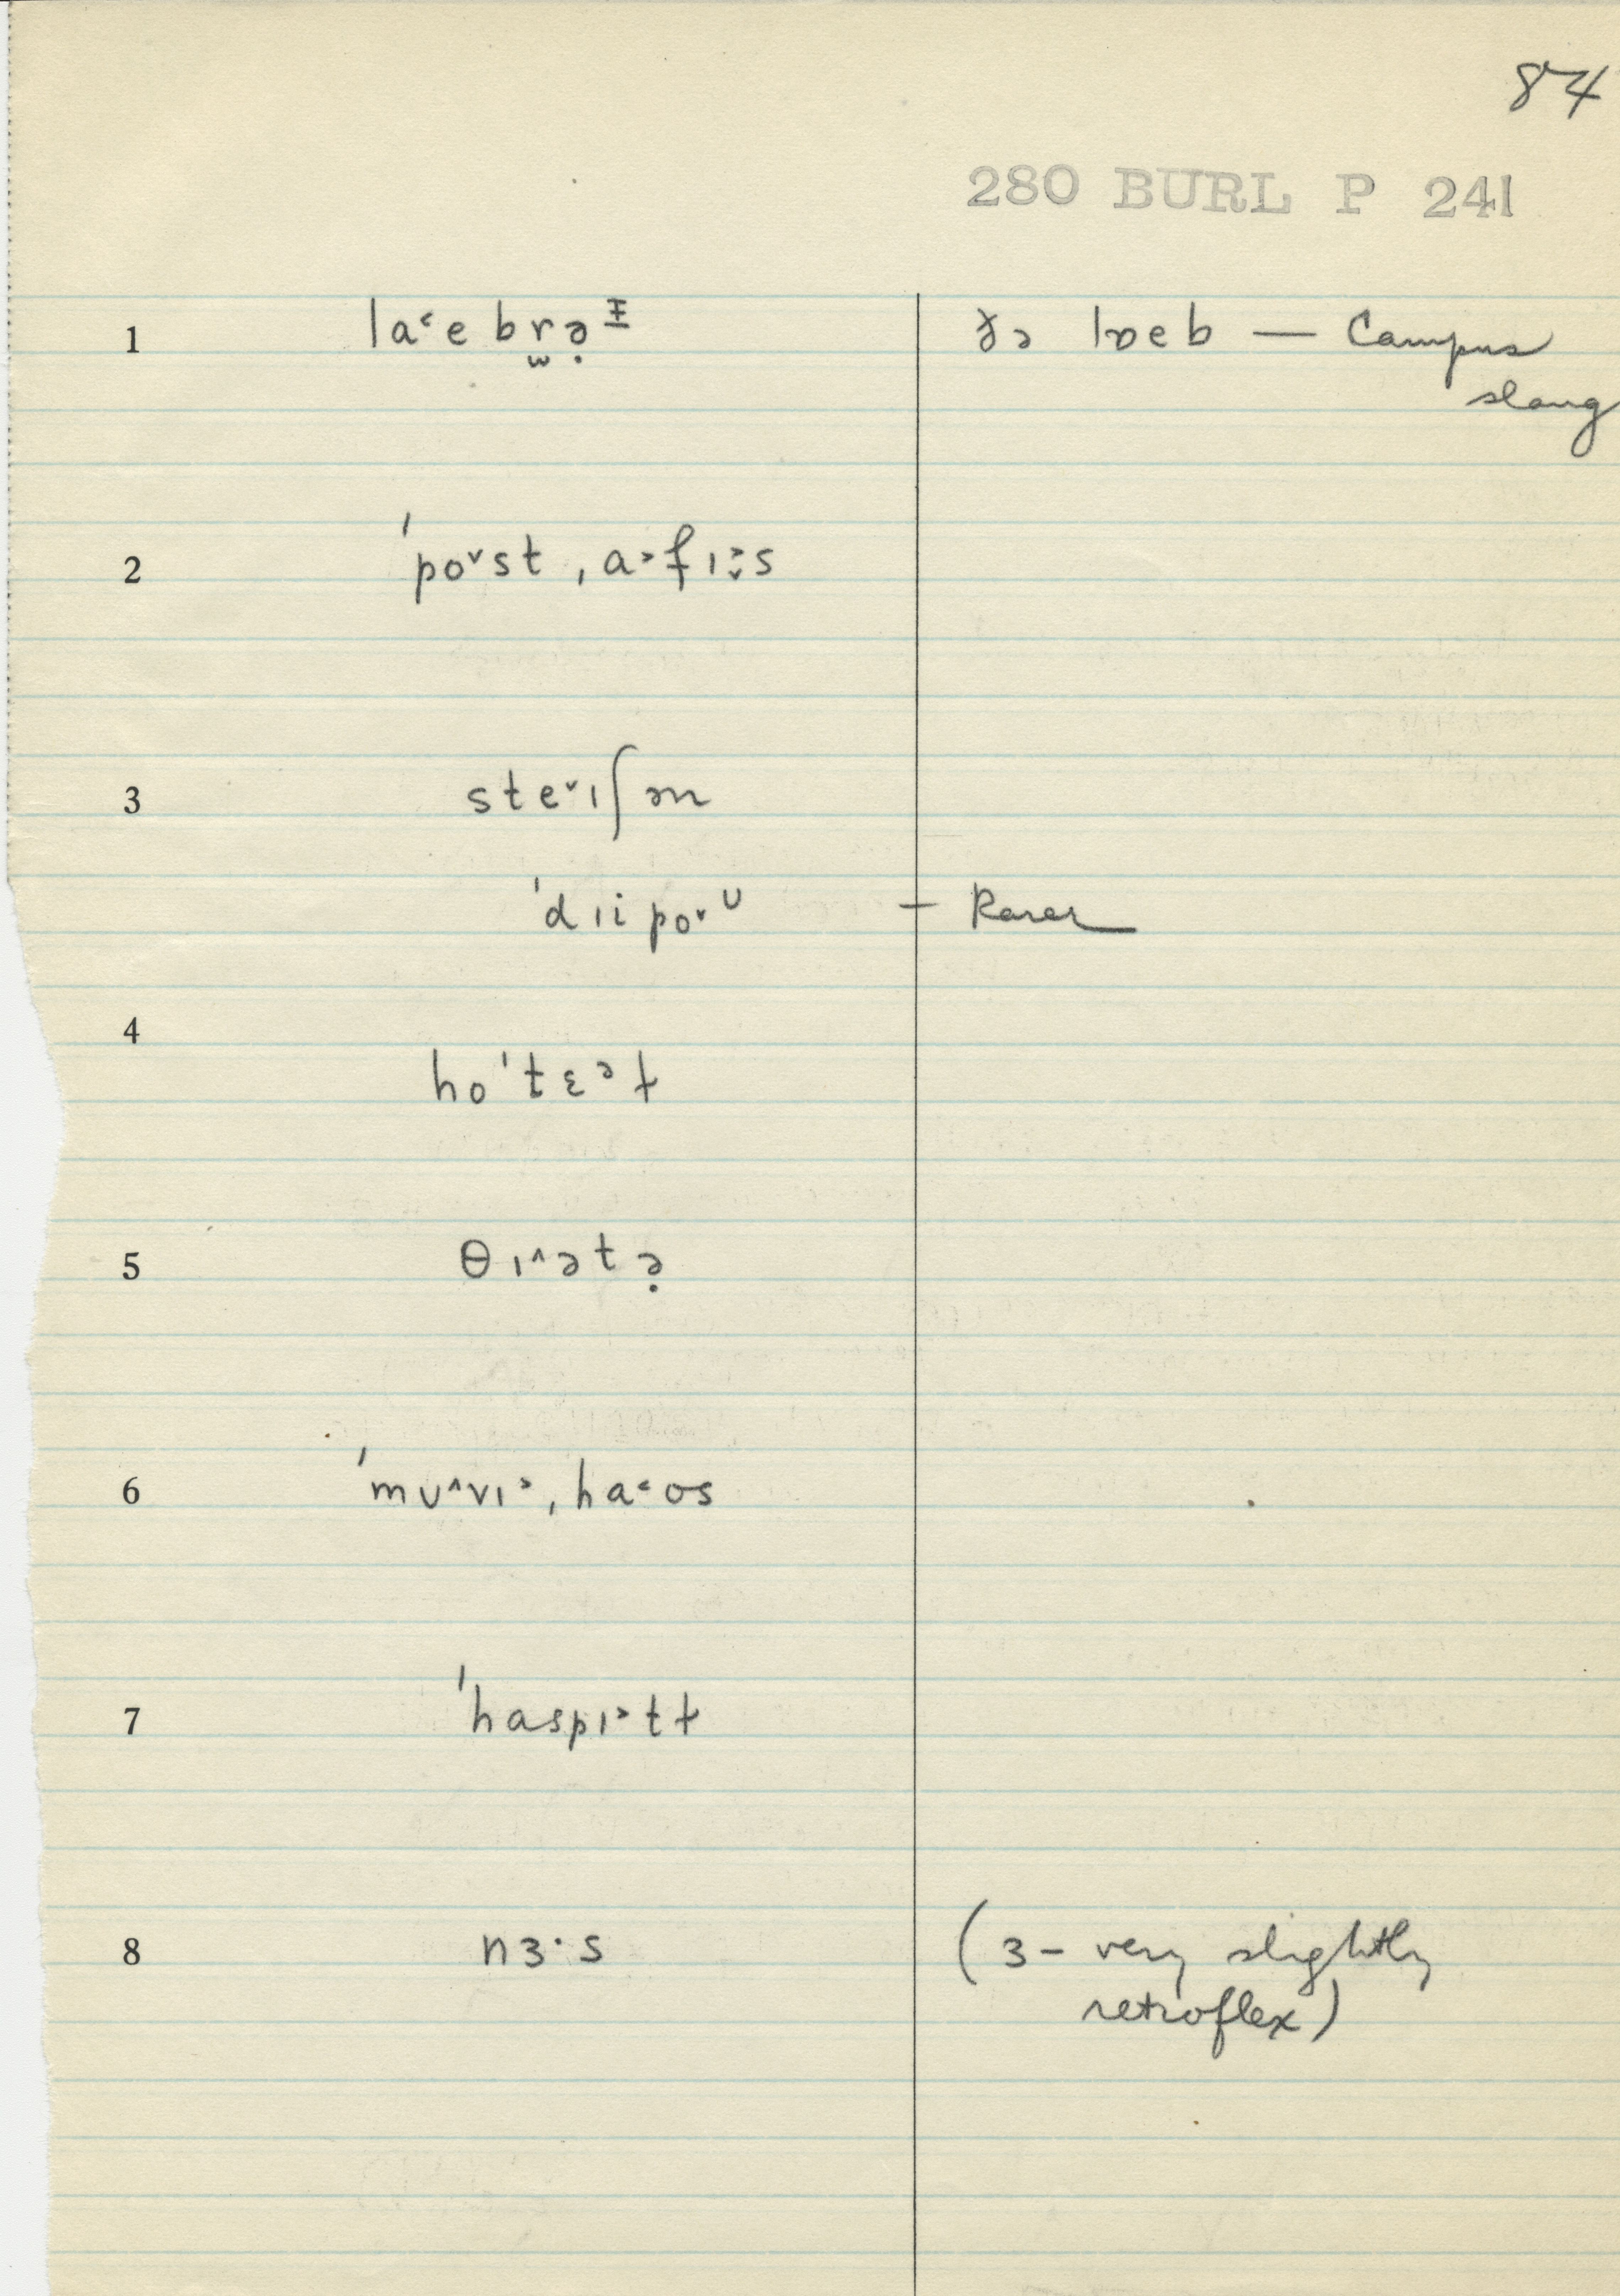 84
280 BURL P 241
1 la˂e br̬ə̣ᵻ ðə lɒeb — Campus
slang
2 ˈpo˅st ˌa˃fɪ˃˅s
3 ste˅ɪʃən
ˈdɪipo˅ᴜ – Rarer
4
hoˈtɛᵊɫ
5 θɪ˄ətə̣
6 ˈmᴜ˄vɪ˃ˌha˂ʊs
7 ˈhaspɪ˃tɫ
8 nɜ·s (ɜ – very slightly
retroflex)